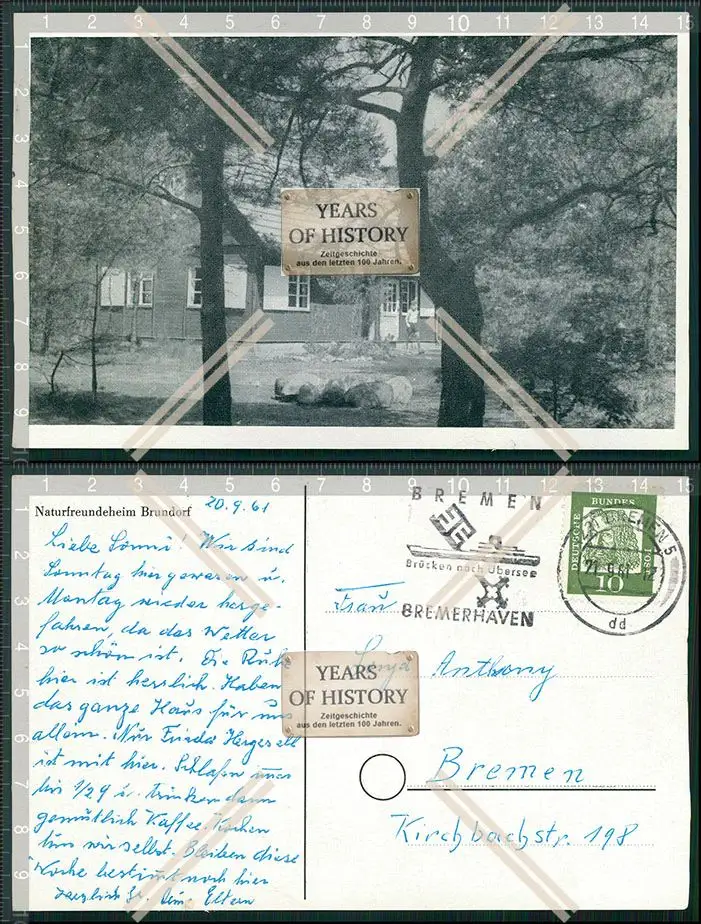 YEARS
OF HISTORY
Zeitgeschichte
aus den letzten 100 Jahren.
Naturfreundeheim Brundorf
20.9.61
Liebe Sonni! Wir sind
Sonntag hier gewesen u.
Montag wieder herge-
fahren, da das Wetter
so schön ist. Die Ruhe
hier ist herrlich. Haben
das ganze Haus für uns
allein. Nur Frieda Hergesell
ist mit hier. Schlafen immer
bis 1/29 u. trinken dann
gemütlich Kaffee. Kochen
tun wir selbst. Bleiben diese
Woche bestimmt noch hier
Herzlich Gr. Eltern
BREMEN
Brücken nach Übersee
BREMERHAVEN
DEUTSCHE
BUNDES
POST
10
BREMEN 5
21.9.61
dd
Frau
Anthony
YEARS
OF HISTORY
Zeitgeschichte
aus den letzten 100 Jahren.
Bremen
Kirchbachstr. 198